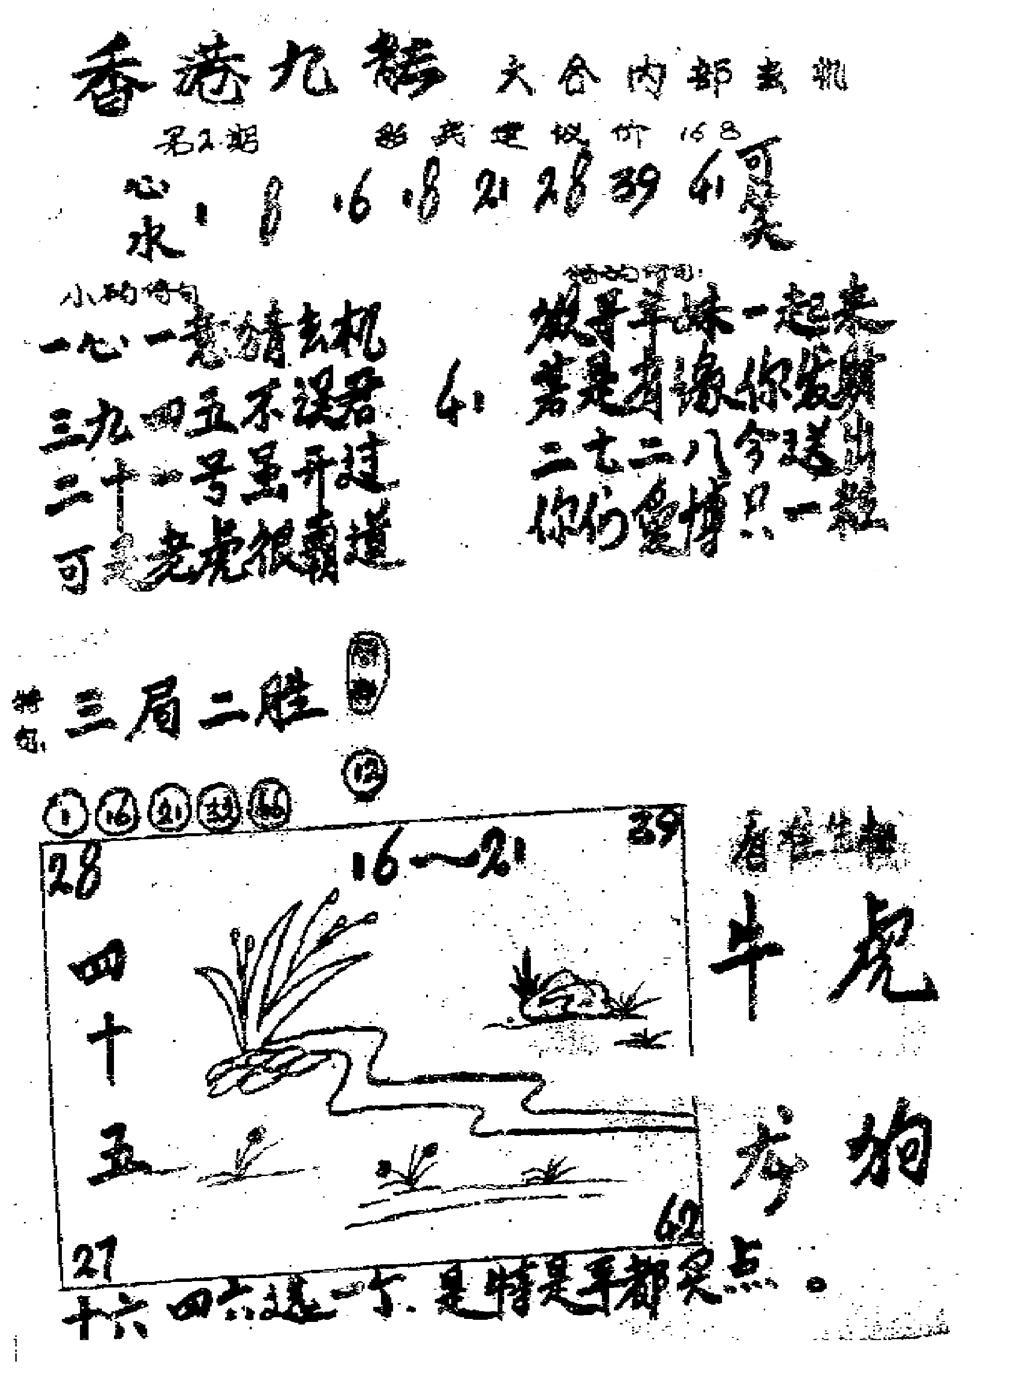 香港九龙 大合内部玄机
第2期 彩民建议价168
心水 1 8 16 18 21 28 39 41 可笑
小的诗句
一心一意猜玄机
三九四五不误君
二十一号虽开过
可是老虎很霸道
41
猴哥羊妹一起来
若是有缘你发财
二七二八今送出
你们爱博只一粒
特句:
三局二胜
12
1 16 21 33
28 16~21 39
四十五
27 42
看准生肖
牛 虎
龙 狗
十六四六送一个.是特是平都灵点。